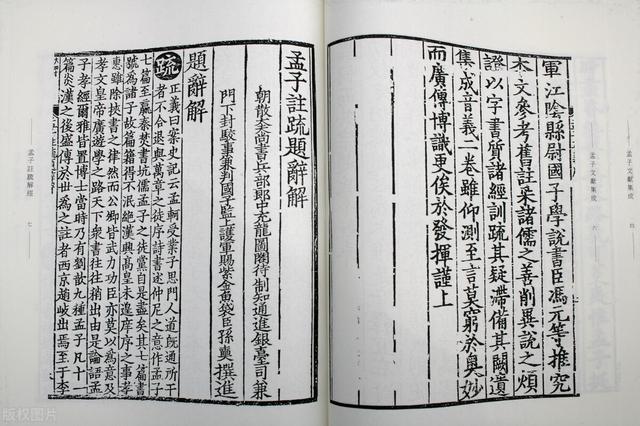 軍江陰縣尉國子學說書臣馮元等推究
本文參考舊註采諸儒之善削異說之煩
證以字書質諸經訓疏其疑滯備其闕遺
集成音義二卷雖仰測至言莫窮於奧妙
而廣傳博識更俟於發揮謹上
孟子文獻集成 六
孟子註疏題辭解
朝散大夫尚書兵部郎中充龍圖閣待制知通進銀臺司兼
門下封駮事兼判國子監上護軍賜紫金魚袋臣孫奭撰進
題辭解
疏 正義曰案史記云孟軻受業子思門人道既通所干
者不合退與萬章之徒序詩書述仲尼之意作孟子
七篇至嬴秦焚書坑儒孟子之徒黨自是盡矣其七篇書
號為諸子故篇籍得不泯絕漢興高皇未遑庠序之事孝
惠雖除挾書之律然而公卿皆武力功臣亦莫以為意及
孝文皇帝廣遊學之路天下衆書往往稍出由是論語孟
子孝經爾雅皆置博士當時乃有劉歆九種孟子凡十一
篇炎漢之後盛傳於世為之註者西京趙岐出焉至于李
孟子註疏解經 七
版权图片